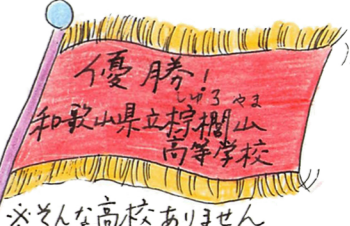 優勝!
しゅろやま
和歌山県立棕櫚山
高等学校
※そんな高校ありません